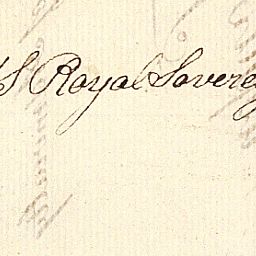 S Royal Sovere